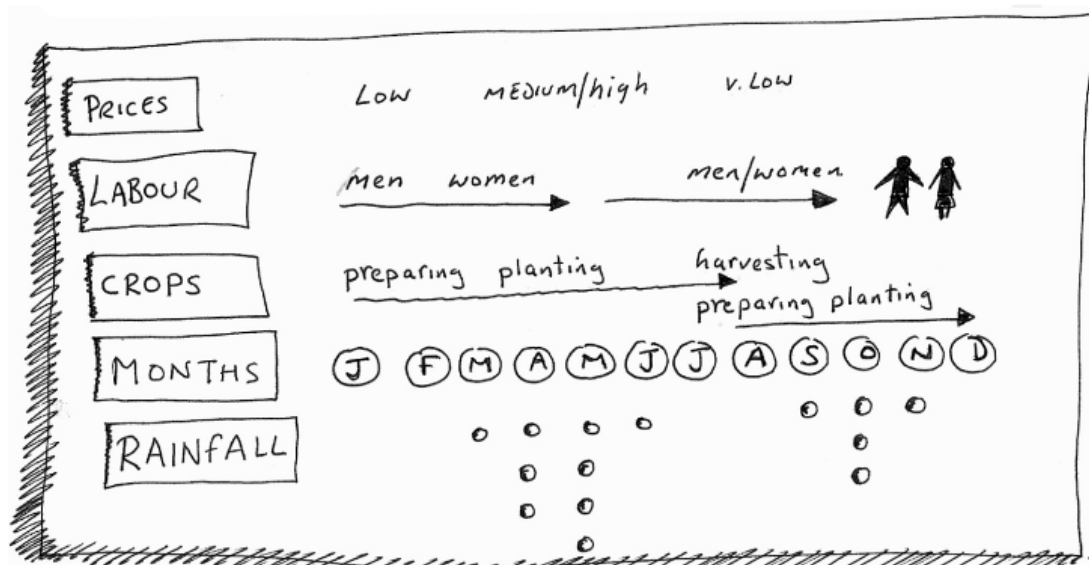 PRICES LOW MEDIUM/high V. LOW
LABOUR men women men/women
CROPS preparing planting harvesting
preparing planting
MONTHS J F M A M J J A S O N D
RAINFALL